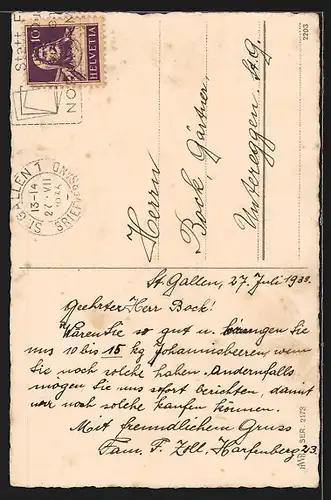 10
HELVETIA
Statt
NO
ST. GALLEN 1
13-14
27.VII
BRIEFVERSAND
2203
Herrn
Bock, Gärtner,
Untereggen. St. G
St. Gallen, 27. Juli 1933.
Geehrter Herr Bock!
Wären Sie so gut u. bringen Sie
uns 10 bis 15 kg Johannisbeeren, wenn
Sie noch solche haben. Andernfalls
mögen Sie uns sofort berichten, damit
wir noch solche kaufen können.
Mit freundlichem Gruss
Fam. F. Zoll, Harfenberg 23.
SER. 2173